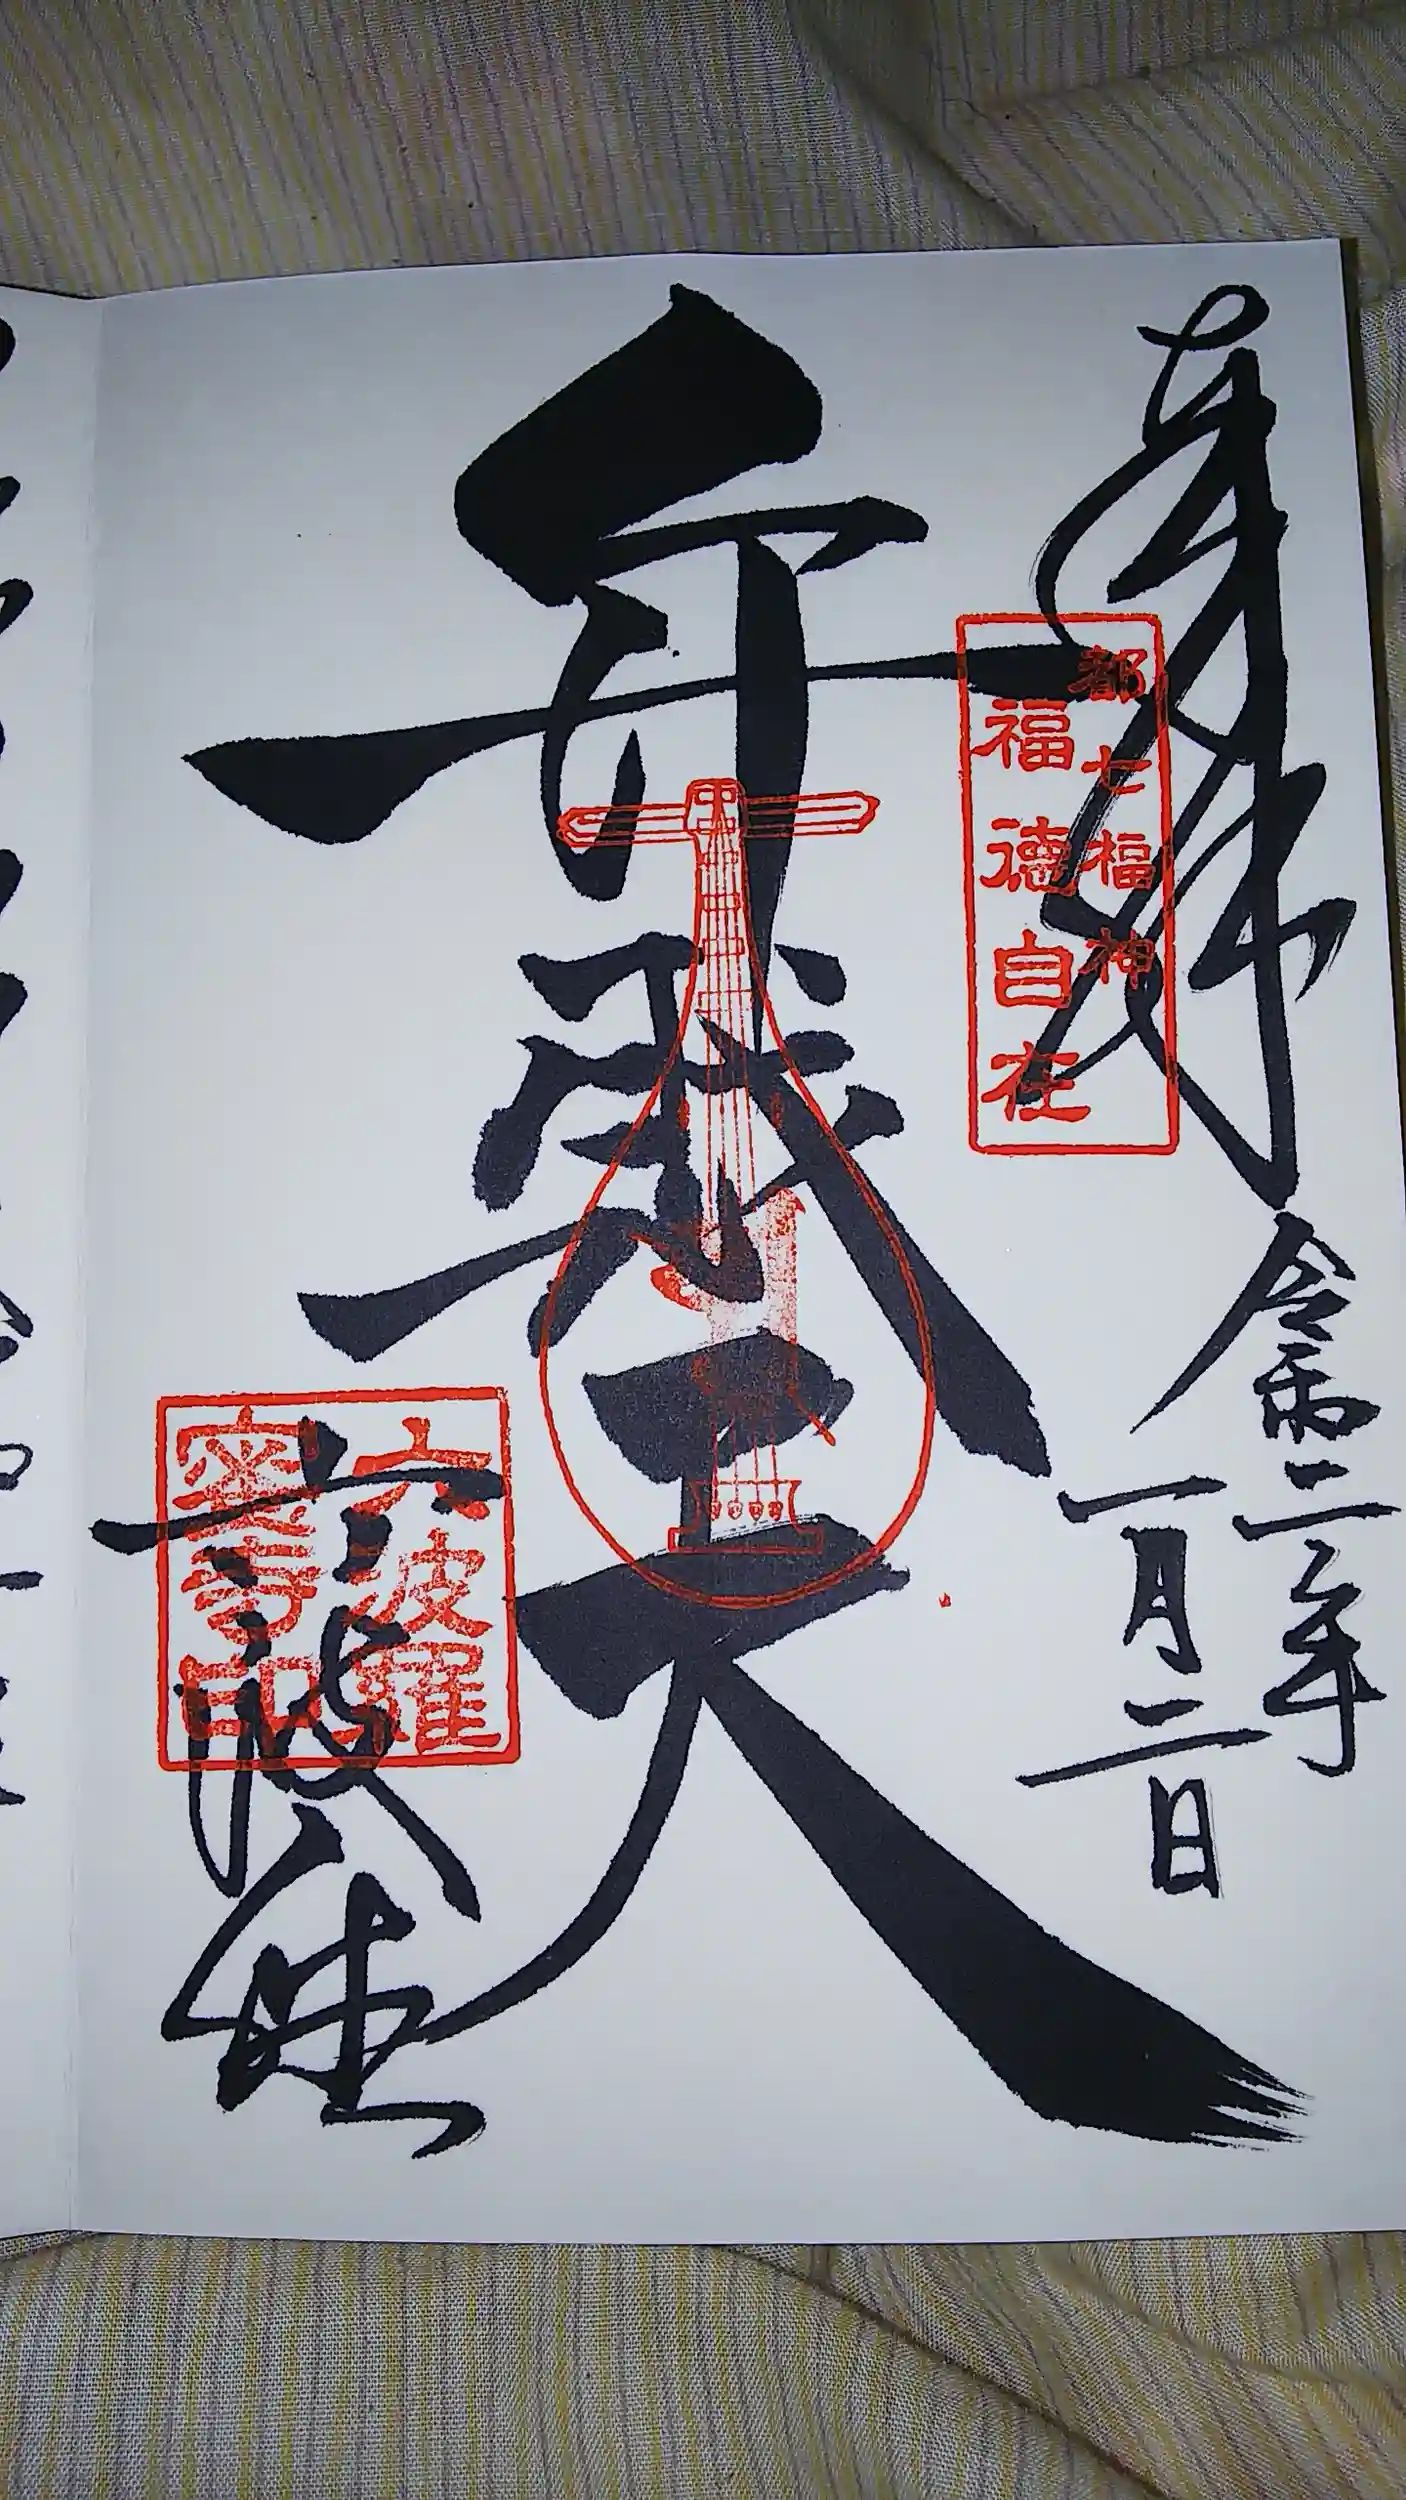 奉拝
令和二年
一月二日
都七福神
福徳自在
弁財天
六波羅
蜜寺印